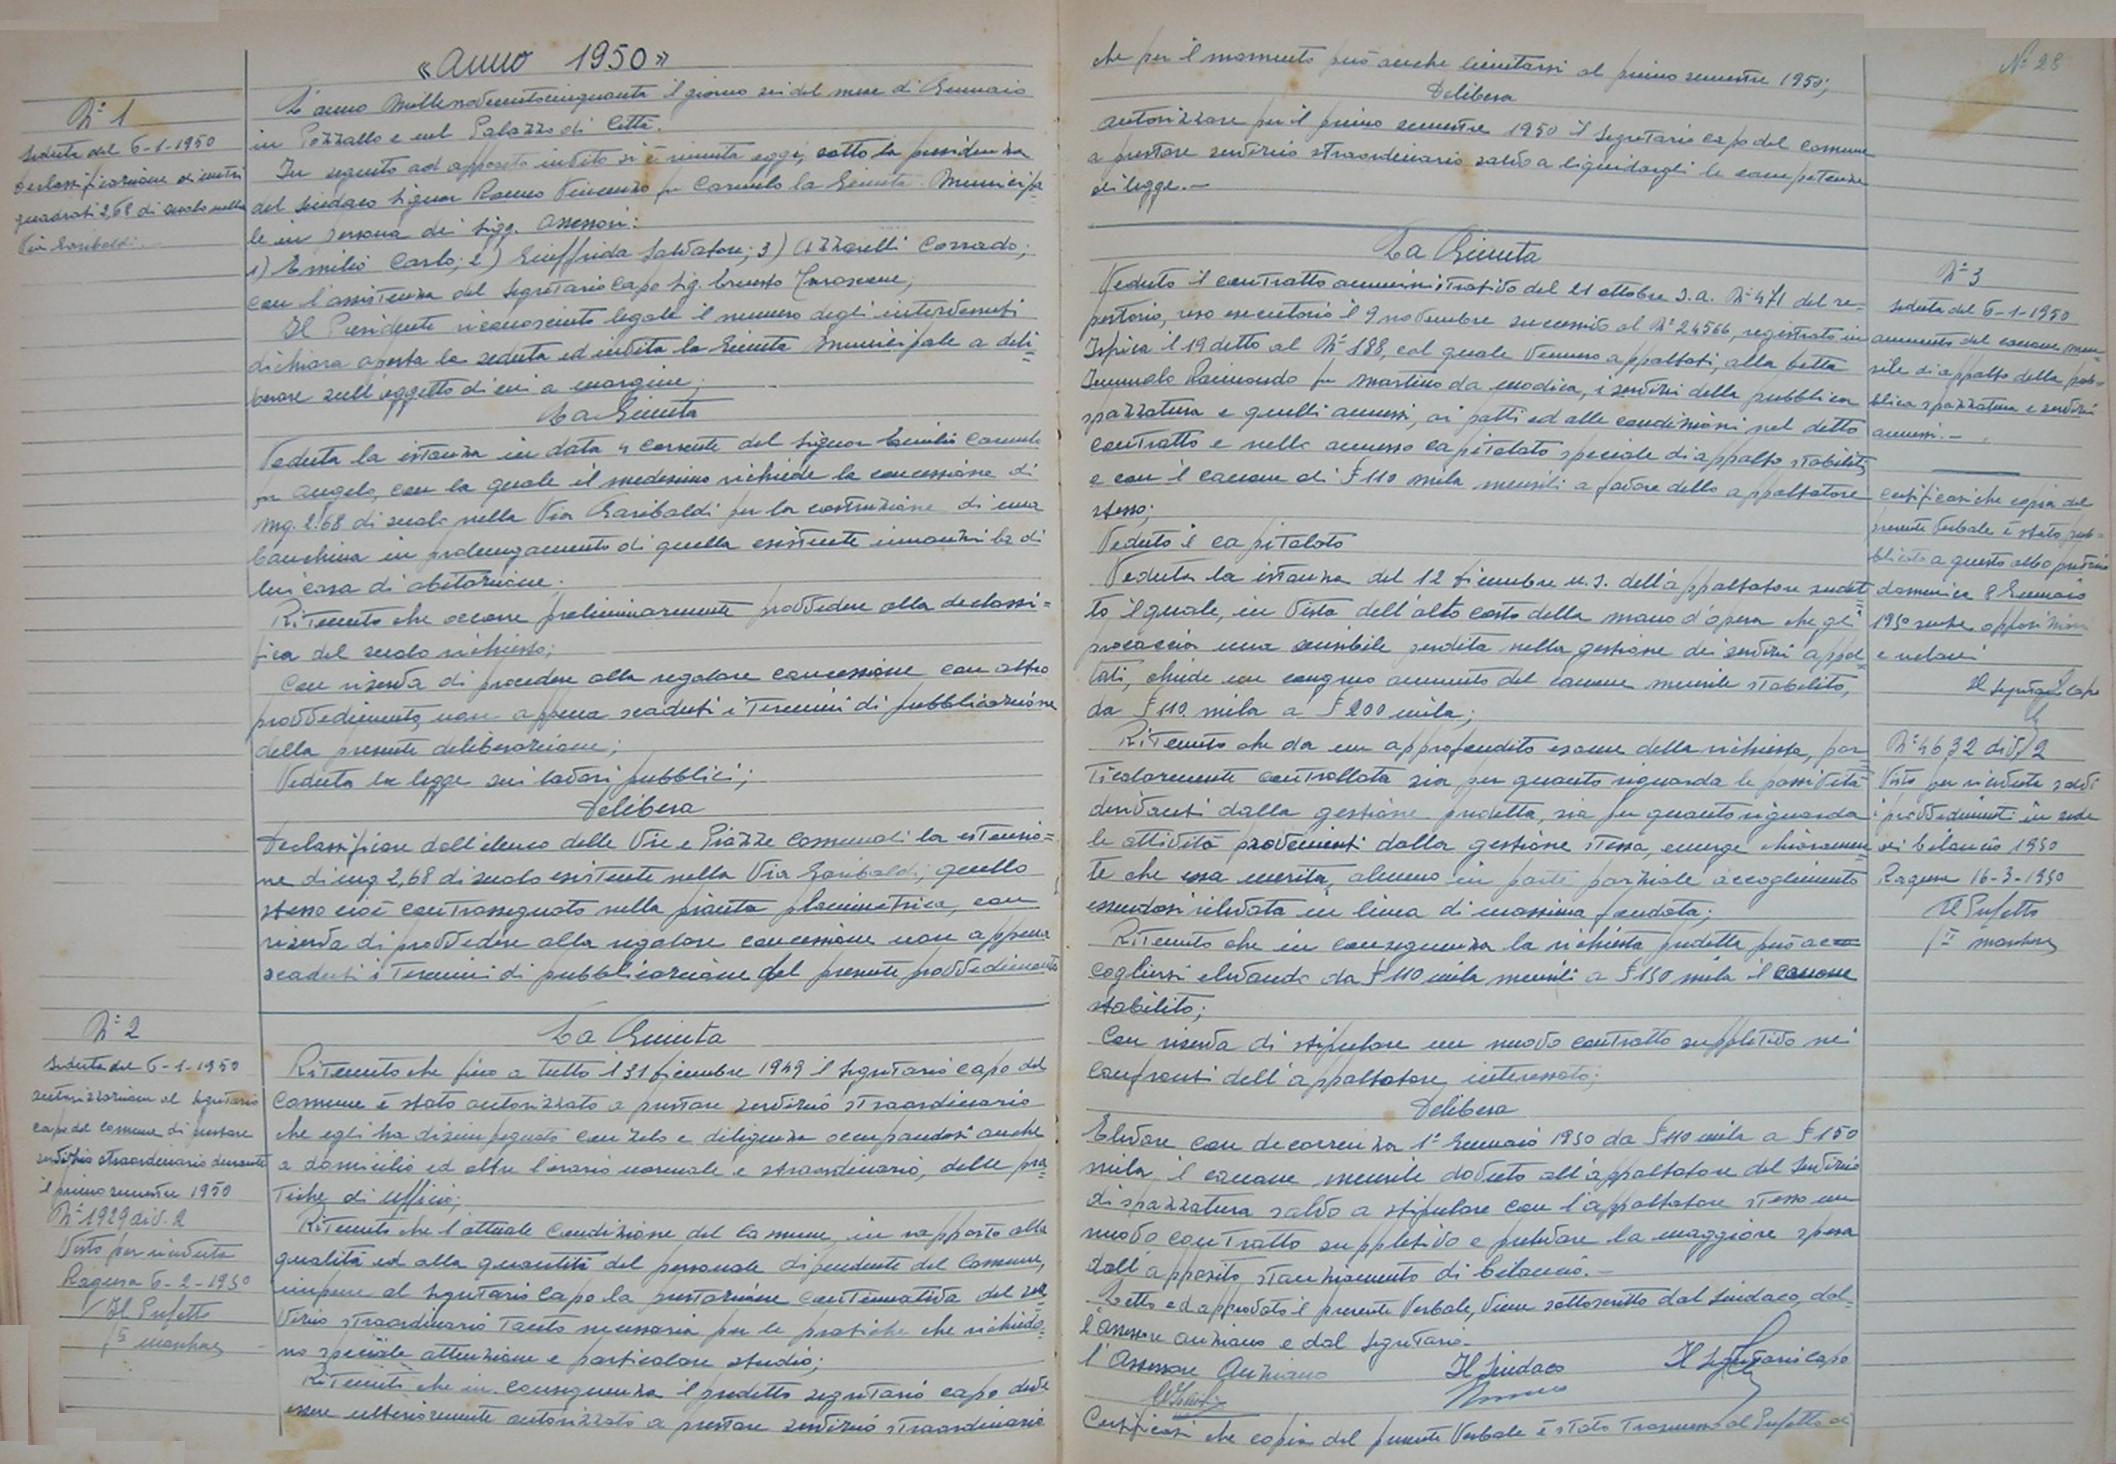 «Anno 1950»
N° 1
Seduta del 6-1-1950
Declassificazione di metri
quadrati 2,68 di suolo nella
Via Garibaldi.
L'anno Millenovecentocinquanta il giorno sei del mese di Gennaio
in Pozzallo e nel Palazzo di Città.
In seguito ad apposito invito si è riunita oggi, sotto la presidenza
del Sindaco Signor Vincenzo fu Carmelo la Giunta Municipa-
le in persona dei Sigg. Assessori:
1) Emilio Carlo; 2) Giuffrida Salvatore; 3) Azzarelli Corrado;
con l'assistenza del Segretario Capo Sig. Ernesto
Il Presidente riconosciuto legale il numero degli intervenuti
dichiara aperta la seduta ed invita la Giunta Municipale a deli=
berare sull'oggetto di cui a margine;
La Giunta
Veduta la istanza in data 4 corrente del Signor Emilio Carmelo
fu Angelo, con la quale il medesimo richiede la concessione di
mq. 2.68 di suolo nella Via Garibaldi per la costruzione di una
banchina in prolungamento di quella esistente innanzi la di
lui casa di abitazione;
Ritenuto che occorre preliminarmente provvedere alla declassi=
fica del suolo richiesto;
Con riserva di procedere alla regolare concessione con altro
provvedimento, non appena scaduti i termini di pubblicazione
della presente deliberazione;
Veduta la legge sui lavori pubblici;
Delibera
Declassificare dall'elenco delle Vie e Piazze Comunali la estensio=
ne di mq 2,68 di suolo esistente nella Via Garibaldi, quello
stesso cioè contrassegnato nella pianta planimetrica, con
riserva di provvedere alla regolare concessione non appena
scaduti i termini di pubblicazione del presente provvedimento
N° 2
Seduta del 6-1-1950
autorizzazione al Segretario
capo del Comune di prestare
servizio straordinario durante
il primo semestre 1950
N° 1929 div. 2
Visto per ricevuta
Ragusa 6-2-1950
Il Prefetto
La Giunta
Ritenuto che fino a tutto il 31 dicembre 1949 il Segretario capo del
Comune è stato autorizzato a prestare servizio straordinario
che egli ha disimpegnato con zelo e diligenza occupandosi anche
a domicilio ed oltre l'orario normale e straordinario, delle pra=
tiche di ufficio;
Ritenuto che l'attuale condizione del Comune, in rapporto alla
qualità ed alla quantità del personale dipendente del Comune,
impone al Segretario Capo la prestazione continuativa del ser=
vizio straordinario tanto necessaria per le pratiche che richiedo=
no speciale attenzione e particolare studio;
Ritenuto che in conseguenza il predetto segretario capo deve
essere ulteriormente autorizzato a prestare servizio straordinario
N° 28
che per il momento può anche limitarsi al primo semestre 1950;
Delibera
autorizzare per il primo semestre 1950 il Segretario capo del Comune
a prestare servizio straordinario salvo a liquidargli le competenze
di legge.-
La Giunta
Veduto il contratto amministrativo del 21 ottobre s.a. N° 471 del re-
pertorio, reso esecutorio il 9 novembre successivo al N° 24566, registrato in
Ispica il 19 detto al N° 188, col quale vennero appaltati, alla ditta
Raimondo fu Martino da Modica, i servizi della pubblica
spazzatura e quelli annessi, ai patti ed alle condizioni nel detto
contratto e nello annesso capitolato speciale di appalto stabiliti
e con il canone di £ 110 mila mensili a favore dello appaltatore
stesso;
Veduto il capitolato
Veduta la istanza del 12 dicembre u.s. dell'appaltatore sudet=
to il quale, in vista dell'alto costo della mano d'opera che gli
procaccia una sensibile perdita nella gestione dei servizi appal=
tati, chiede un congruo aumento del canone mensile stabilito,
da £ 110 mila a £ 200 mila;
Ritenuto che da un approfondito esame della richiesta, par
ticolarmente controllata sia per quanto riguarda le passività
derivanti dalla gestione predetta, sia per quanto riguarda
le attività provenienti dalla gestione stessa, emerge chiaramen=
te che essa merita, almeno in parte parziale accoglimento
essendosi rilevata in linea di massima fondata;
Ritenuto che in conseguenza la richiesta predetta può ac=
cogliersi elevando da £ 110 mila mensili a £ 150 mila il canone
stabilito;
Con riserva di stipulare un nuovo contratto suppletivo nei
confronti dell'appaltatore interessato;
Delibera
Elevare con decorrenza 1° Gennaio 1950 da £ 110 mila a £ 150
mila il canone mensile dovuto all'appaltatore del Servizio
di spazzatura salvo a stipulare con l'appaltatore stesso un
nuovo contratto suppletivo e prelevare la maggiore spesa
dall'apposito stanziamento di bilancio.-
Letto ed approvato il presente Verbale, viene sottoscritto dal Sindaco, dal-
l'Assessore anziano e dal Segretario.
l'Assessore Anziano Il Sindaco Il Segretario capo
Certificasi che copia del presente Verbale è stato trasmesso al Prefetto di
N° 3
Seduta del 6-1-1950
aumento del canone men=
sile di appalto della pub=
blica spazzatura e servizi
annessi.-
Certificasi che copia del
presente Verbale è stato pub=
blicato a questo albo pretorio
domenica 8 Gennaio
1950 senza opposizioni
e reclami
Il Segretario Capo
N° 4632 div. 2
Visto per ricevuta salvo
i provvedimenti in sede
di bilancio 1950
Ragusa 16-3-1950
Il Prefetto